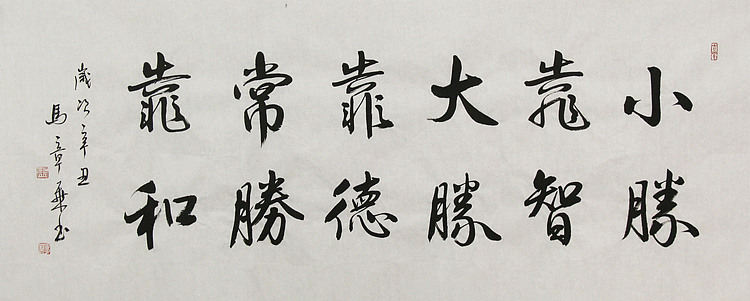 小勝
靠智
大勝
靠德
常勝
靠和
歲次辛丑
馬章乘书